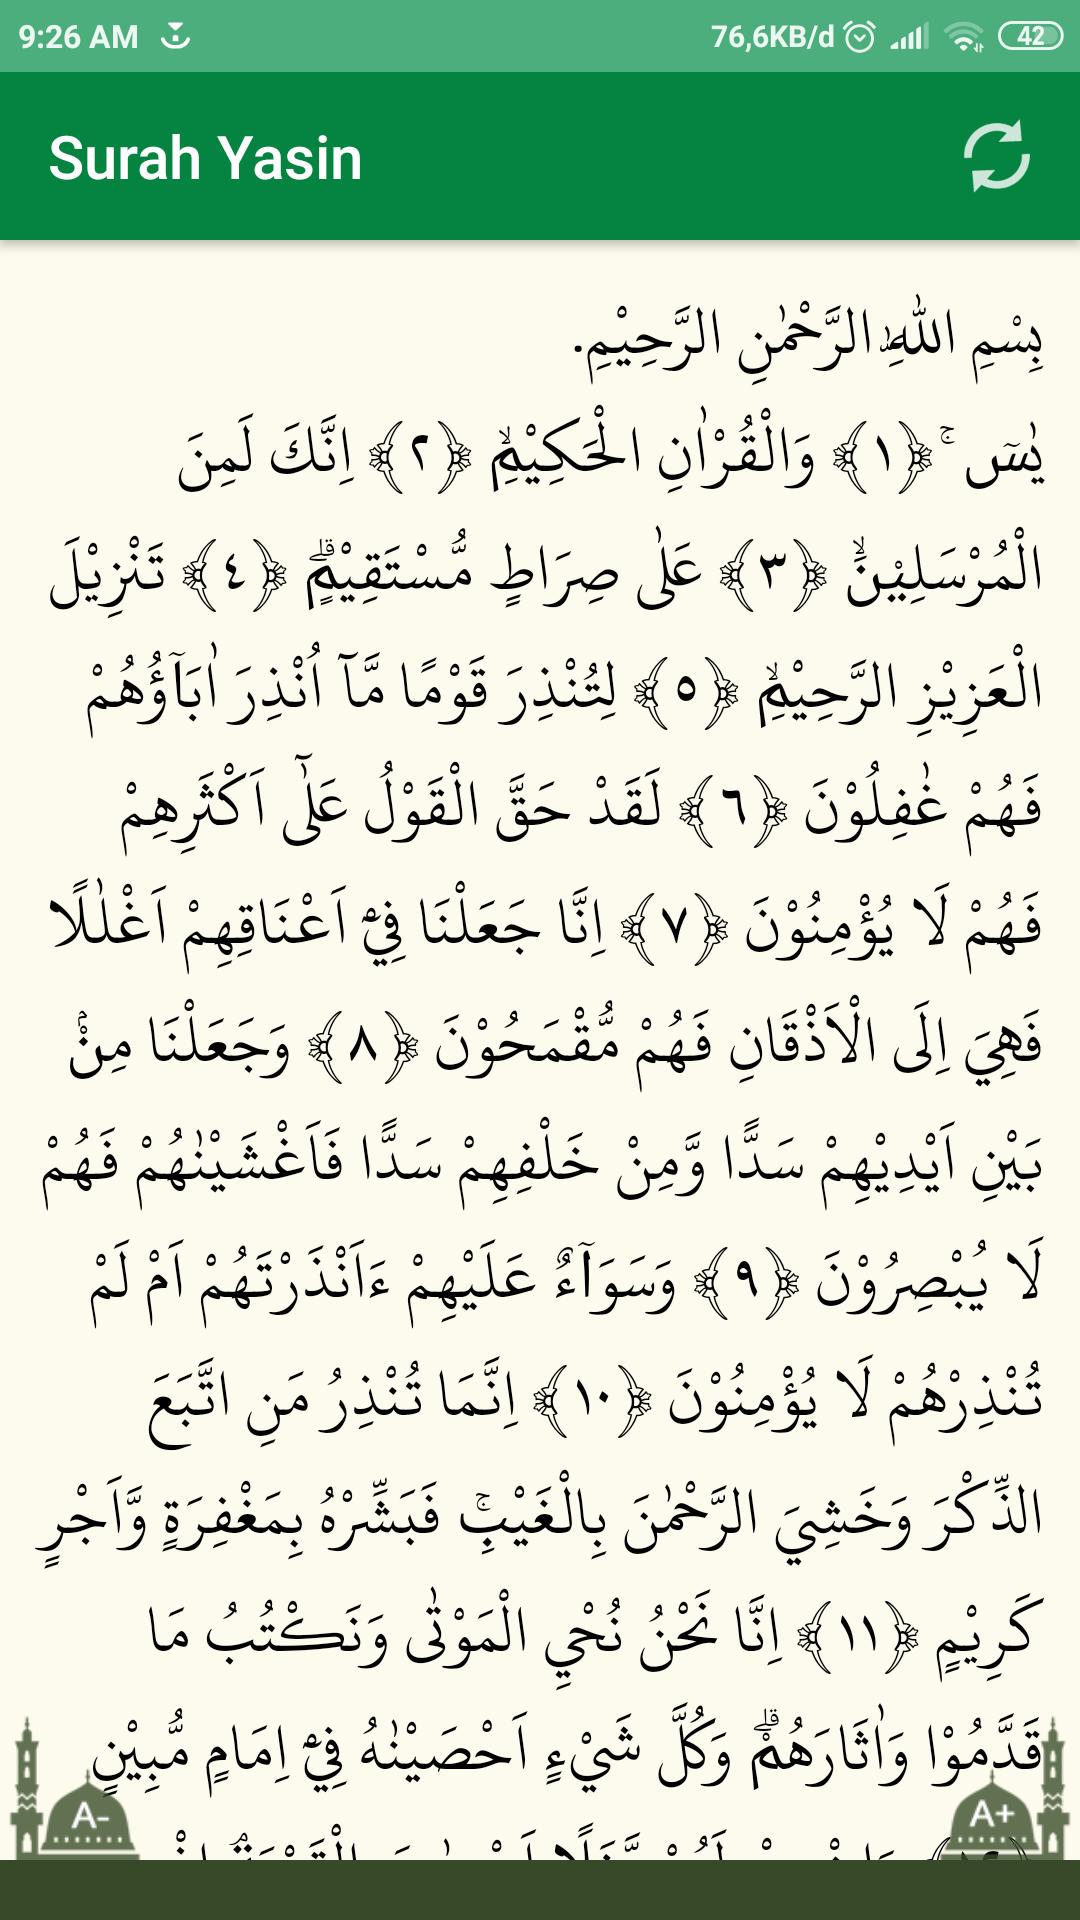 9:26 AM 76,6KB/d 42
Surah Yasin
بِسْمِ اللّٰهِ الرَّحْمٰنِ الرَّحِيْمِ.
يٰسۤ ۚ ﴿١﴾ وَالْقُرْاٰنِ الْحَكِيْمِۙ ﴿٢﴾ اِنَّكَ لَمِنَ
الْمُرْسَلِيْنَۙ ﴿٣﴾ عَلٰى صِرَاطٍ مُّسْتَقِيْمٍۗ ﴿٤﴾ تَنْزِيْلَ
الْعَزِيْزِ الرَّحِيْمِۙ ﴿٥﴾ لِتُنْذِرَ قَوْمًا مَّآ اُنْذِرَ اٰبَاۤؤُهُمْ
فَهُمْ غٰفِلُوْنَ ﴿٦﴾ لَقَدْ حَقَّ الْقَوْلُ عَلٰٓى اَكْثَرِهِمْ
فَهُمْ لَا يُؤْمِنُوْنَ ﴿٧﴾ اِنَّا جَعَلْنَا فِيْٓ اَعْنَاقِهِمْ اَغْلٰلًا
فَهِيَ اِلَى الْاَذْقَانِ فَهُمْ مُّقْمَحُوْنَ ﴿٨﴾ وَجَعَلْنَا مِنْۢ
بَيْنِ اَيْدِيْهِمْ سَدًّا وَّمِنْ خَلْفِهِمْ سَدًّا فَاَغْشَيْنٰهُمْ فَهُمْ
لَا يُبْصِرُوْنَ ﴿٩﴾ وَسَوَاۤءٌ عَلَيْهِمْ ءَاَنْذَرْتَهُمْ اَمْ لَمْ
تُنْذِرْهُمْ لَا يُؤْمِنُوْنَ ﴿١٠﴾ اِنَّمَا تُنْذِرُ مَنِ اتَّبَعَ
الذِّكْرَ وَخَشِيَ الرَّحْمٰنَ بِالْغَيْبِۚ فَبَشِّرْهُ بِمَغْفِرَةٍ وَّاَجْرٍ
كَرِيْمٍ ﴿١١﴾ اِنَّا نَحْنُ نُحْيِ الْمَوْتٰى وَنَكْتُبُ مَا
قَدَّمُوْا وَاٰثَارَهُمْۗ وَكُلَّ شَيْءٍ اَحْصَيْنٰهُ فِيْٓ اِمَامٍ مُّبِيْنٍ
A- A+